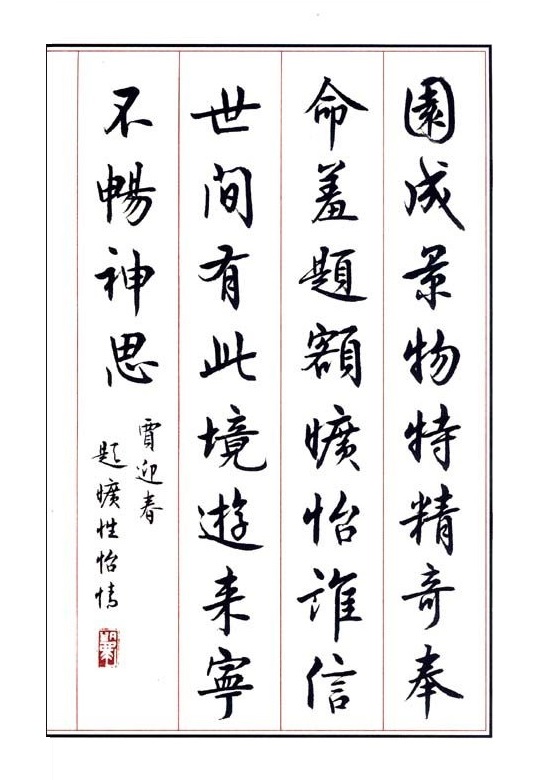 園成景物特精奇奉
命羞題額曠怡誰信
世間有此境遊来寧
不暢神思
賈迎春
題曠性怡情